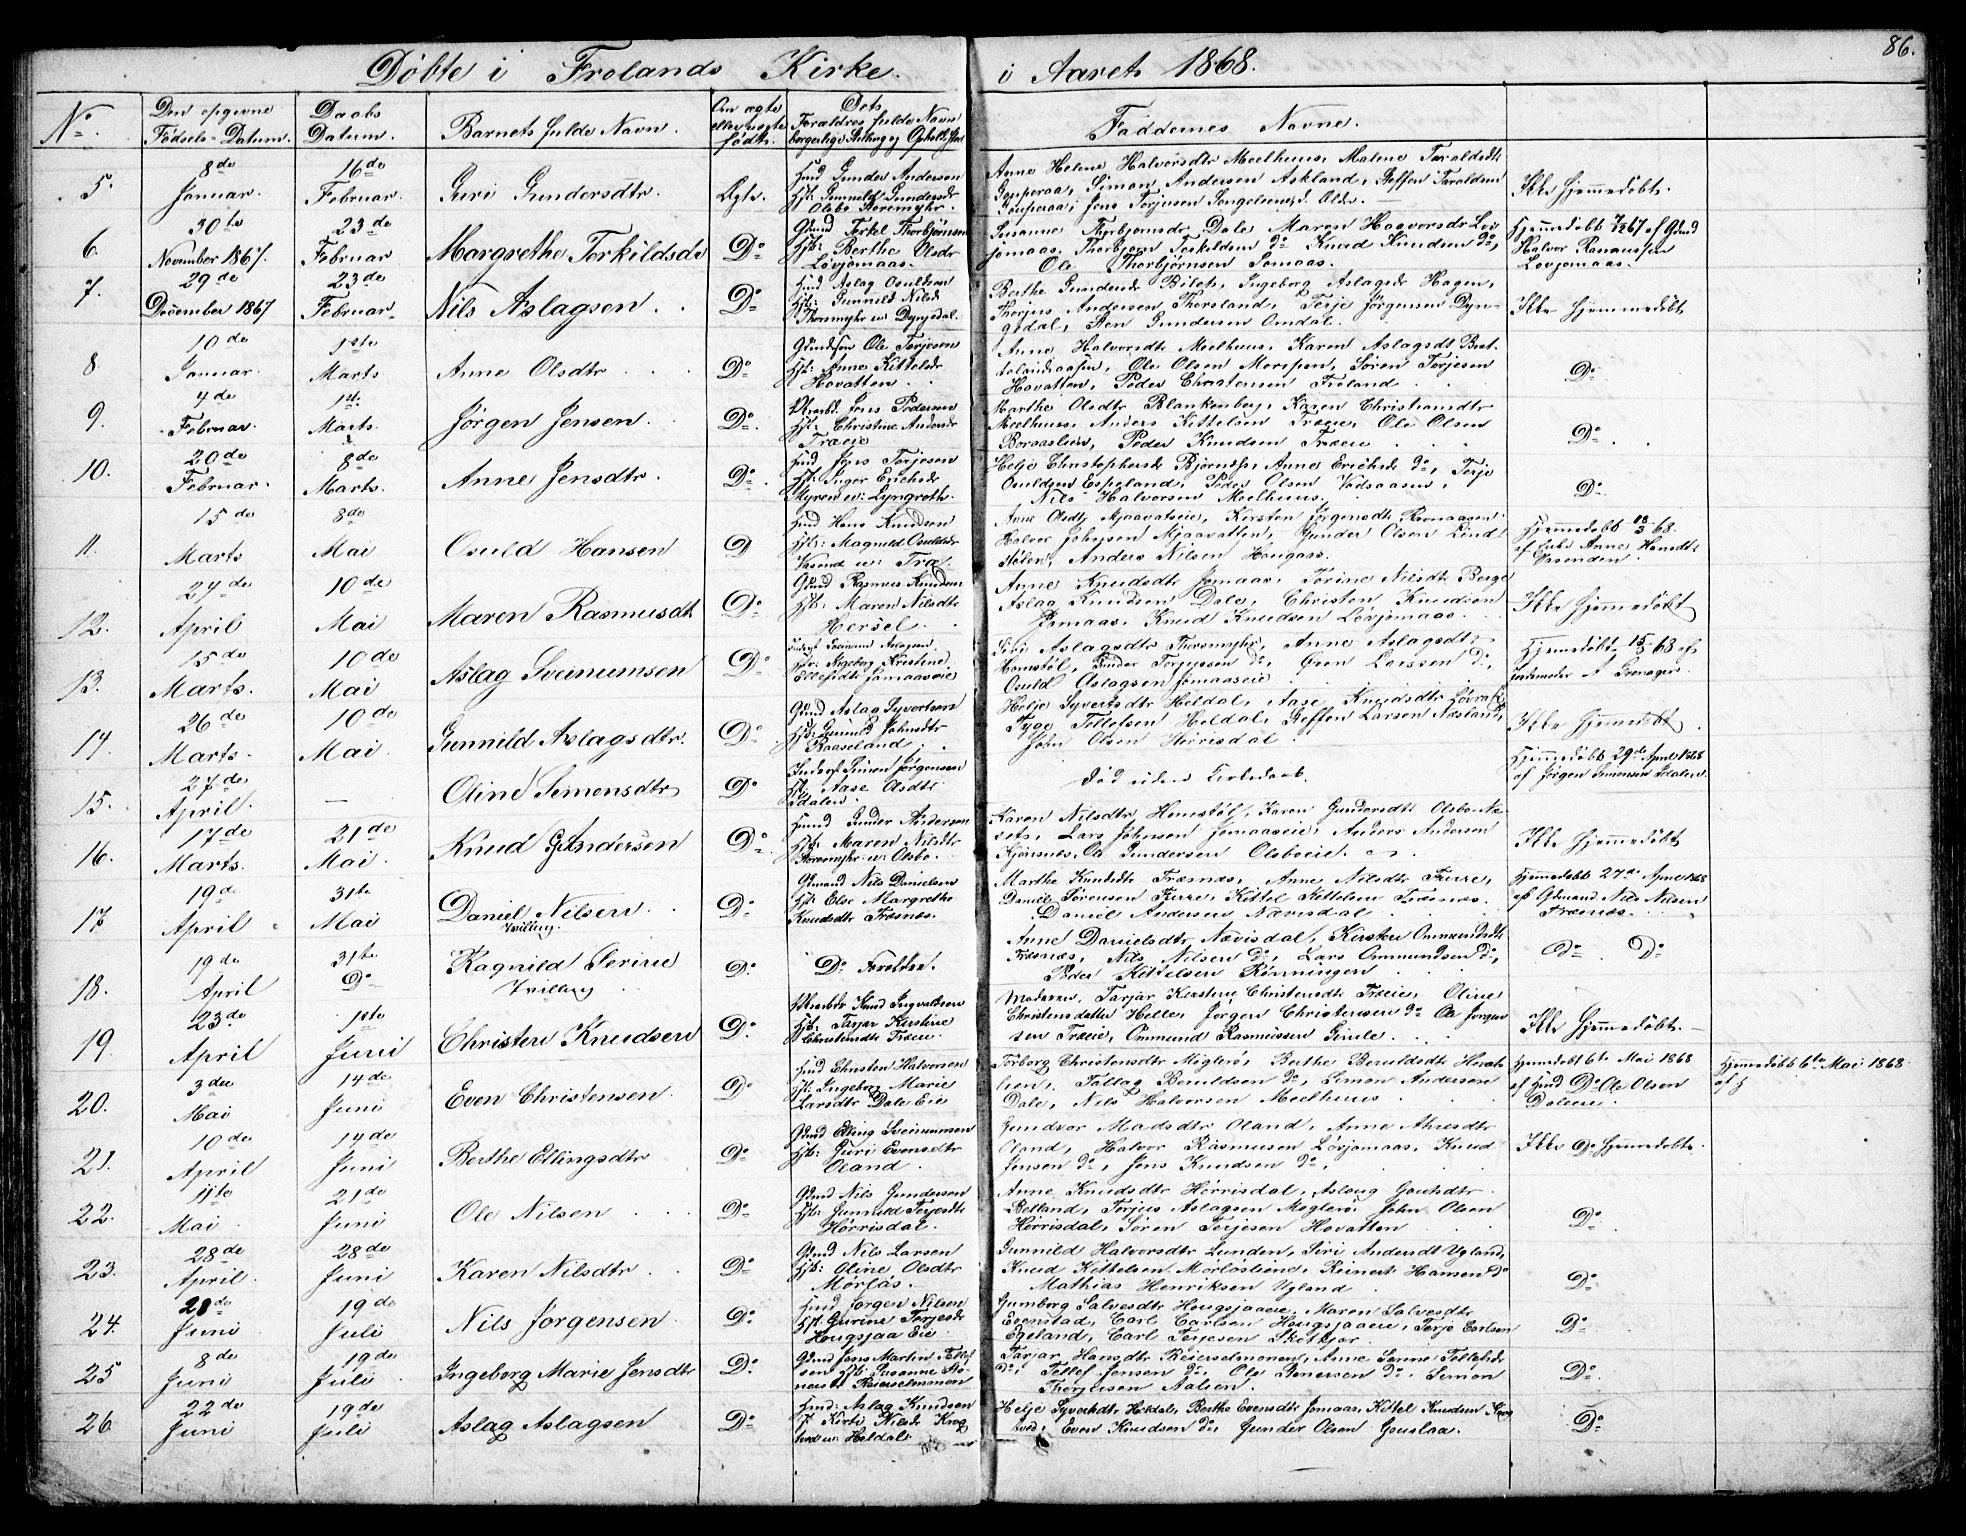 86.
Døbte i Frolands Kirke. i Aaret 1868.
No. Den opgivne Fødsels-Datum. Daabs Datum. Barnets fulde Navn. Om ægte eller uægte født. Dets Forældres fulde Navn borgerlige Stilling og Opholdssted
Faddernes Navne.
5. 8de Januar. 16de Februar. Guri Gundersdtr. Ægte.
Hmd Gunder Andersen
Hst. Gunnild Gundersdr
Olsbo Storemyhr.
Anne Helene Halvorsdtr Moelhuus, Malene Taraldsdt
Simon Andersen Askland, Steffen Taraldsen
Jens Terjesen
Ikke Hjemmedøbt.
6. 30te November 1867. 23de Februar Margrethe Terkildsdr Do
Gmd Terkel Thorbjørnsen
Hst: Berthe Olsdr
Løvjomaas.
Susanne Thorbjørnsdr Dale, Maren Halvorsdr Løv
jomaas, Thorbjørn Terkildsen do, Knud Knudsen do,
Ole Thorbjørnsen Jomaas.
Hjemmedøbt 7/12 67 af Gmd
Halvor Rasmussen
Løvjomaas.
7. 29de December 1867 23de Februar Nils Aslagsen Do
Hmd Aslag Osuldsen
Hst. Gunnild Nilsd
Thoremyhr u. Dyngedal.
Berthe Gundersdr Ingeborg Aslagsdr Hagen,
Thorjus Andersen Thorsland, Terje Jørgensen Dyn-
gedal, Sten Gundersen Omdal.
Ikke Hjemmedøbt
8. 10de Januar. 1ste Marts Anne Olsdtr Do
Gmd Ole Terjesen
Hst: Anne Kittelsdr
Hovatten
Anne Halvorsdtr Moelhuus, Karen Aslagsdt
Ole Olsen Søren Terjesen
Hovatten, Peder Christensen Froland
Do
9. 4de Februar. 1st. Marts. Jørgen Jensen Do
Jens Pedersen
Hst: Christine Andersdr
Træeie
Marthe Olsdtr Blankenberg, Karen Christiansdtr
Moelhuus, Anders Kittelsen Træeie, Ole Olsen
Boraaslien, Peder Knudsen Træeie
Do
10. 20de Februar. 8de Marts. Anne Jensdtr. Do
Hmd Jens Terjesen
Hst: Inger Erichsdr
Myren u: Lyngroth.
Helje Christophersdr Anne Erichsdr do, Terje
Osuldsen Espeland, Peder Olsen
Nils Halvorsen Moelhuus.
Do
11. 15de Marts 8de Mai Osuld Hansen D
Hmd Hans Knudsen
Hst: Magnild Osuldsdr
Vasend u: Træ.
Anne Olsdtr Mjaavatneie, Kirsten Jørgensdtr
Halvor Johnsen Mjaavatten, Gunder Olsen Lind
støl, Anders Nilsen Hougaas.
Hjemmedøbt 18/3 68.
af Enke Anne Hansdt
Vasenden
12. 27de April 10de Mai Maren Rasmusdt Do
Gmd Rasmus Knudsen
Hst: Maren Nilsdtr
Hersel
Anne Knudsdtr Jomaas, Torine Nilsdtr Berge
Aslag Knudsen Dale, Christen Knudsen
Jomaas, Knud Knudsen Løvjomaas.
Ikke Hjemmedøbt
13. 15de Marts. 10de Mai Aslag Sveinumsen Do
Hst: Ingeborg Kristine
Ellefsdtr Jomaaseie
Siri Aslagsdtr Thoremyhr, Anne Aslagsdt
Homstøl, Gunder Terjesen do, Ören Larssen do,
Osuld Aslagsen Jomaaseie
Hjemmedøbt 15/3 68 af
Jordemoder A Grenager.
14. 26de Marts. 10de Mai Gunnild Aslagsdtr. Do
Gmd Aslag Syvertsen
Hst: Gunnild Johnsdtr
Raaseland
Helje Syvertsdtr Heldal, Aase Knudsdtr
Tyge Tellefsen Heldal, Steffen Larsen Næsland,
John Olsen Hørrisdal
Ikke Hjemmedøbt
15. 27de April. — Oline Simonsdtr Do
Simon Jørgensen
Hst Aase Olsdtr
Idalen.
Død uden Kirkedaab.
Hjemmedøbt 29de April 1868
af Jørgen Simonsen Idalen.
16. 17de Marts. 21de Mai Knud Gundersen Do
Hmd Gunder Andersen
Hst: Maren Nilsdtr
Storemyhr u: Olsbo.
Karen Nilsdtr Homstøl, Karen Gundersdtr Olsbo
Lars Johnsen Jomaaseie, Anders Andersen
Kjørsnes, Ole Gundersen Olsboeie.
Ikke Hjemmedøbt
17 19de April 31te Mai Daniel Nilsen Tvilling. Do
Gbmand Nils Danielsen
Hst: Else Margrethe
Knudsdtr Træsnæs.
Marthe Knudsdt Træsnæs, Anne Nilsdtr Furre,
Daniel Sørensen Furre, Kittel Kittelsen Træsnæs
Daniel Andersen Nævisdal
Hjemmedøbt 27de April 1868
af Gbmand Nils Nilsen
Træsnæs.
18. 19de April 31te Do Ragnild Serine Tvilling Do
Do Forældre.
Anne Danielsdtr Nævisdal, Kirsten Ommundsdt
Træsnæs, Nils Nilsen do, Lars Ommundsen do,
Peder Kittelsen Rønningen
do Do
19. 23de April 1ste Juni Christen Knudsen Do
Knud Ingvaldsen
Hst: Tarjer Kirstine
Christensdt Træeie
Moderen, Tarjær Kirstine Christensdt Træeie, Oline
Christensdatter Helle, Jørgen Christensen do Ole Jørgen
sen Træeie, Ommund Rasmussen
Ikke Hjemmedøbt.
20. 3die Mai 14de Juni Even Christensen. Do
Hmd Christen Halvorsen
Hst: Ingeborg Marie
Larsdtr Dale Eie
Torborg Christensdt Berthe Beruldsdt
lien, Tallag Beruldsen do, Simon Andersen
Dale, Nils Halvorsen Moelhuus
Hjemmedøbt 6te Mai 1868
af Hmd Do Ole Olsen
Daleeie
Hjemmedøbt 6te Mai 1868.
af
21. 10de April 14de Juni Berthe Ellingsdtr Do
Gbmd Elling Sveinumsen
Hst: Guri Evensdtr
Øland.
Gundvor Madsdtr Øland, Anne
Øland, Halvor Rasmusen Løvjomaas, Knud
Jensen do, Jens Knudsen do,
Ikke Do Hjemmedøbt.
22. 11te Mai 21de Juni Ole Nilsen Do
Gbmd Nils Gundersen
Hst: Gunnild Terjesdt
Hørrisdal.
Anne Knudsdtr Hørrisdal, Aslaug
Retland, Terjus Aslagsen John Olsen
Hørrisdal, Søren Terjesen Hovatten
Do
23. 28de April. 28de Juni Karen Nilsdtr Do
Gbmd Nils Larsen
Hst: Oline Olsdtr
Morløs.
Gunnild Halvorsdtr Lunden, Siri Andersdt Ugland,
Knud Kittelsen Morløsliene, Reinert Hansen do
Mathias Henriksen Ugland
Do
24. 21de Juni 19de Juli Nils Jørgensen Do
Hmd Jørgen Nilsen
Hst Gurine Terjesdr
Hougsjaa Eie
Gumborg Salvesdtr Hougsjaaeie, Maren Salvesdtr
Evenstad, Carl Carlsen Hougsjaaeie, Terje Carlsen
Egeland, Carl Terjesen
Do
25 8de Juni 19de Juli Ingeborg Marie Jensdtr Do
Gbmd Jens Martin Tellef
sen Hst Susanne
Reierselmonen
Tarjær Hansdtr Reierselmonen, Anne Tellefsdr
do, Tellef Jensen do, Ole do, Simon
Thorjusen
Do
26. 22de Juni 19de Juli Aslag Aslagsen Do
Hmd: Aslag Knudsen
Hst Kirsti Nilsdr Krog
tved u: Heldal
Helje Syvertsdt Heldal, Berthe Evensdtr Jomaas, Kittel Knudsen Krog
tved, Even Knudsen do Gunder Olsen
Do